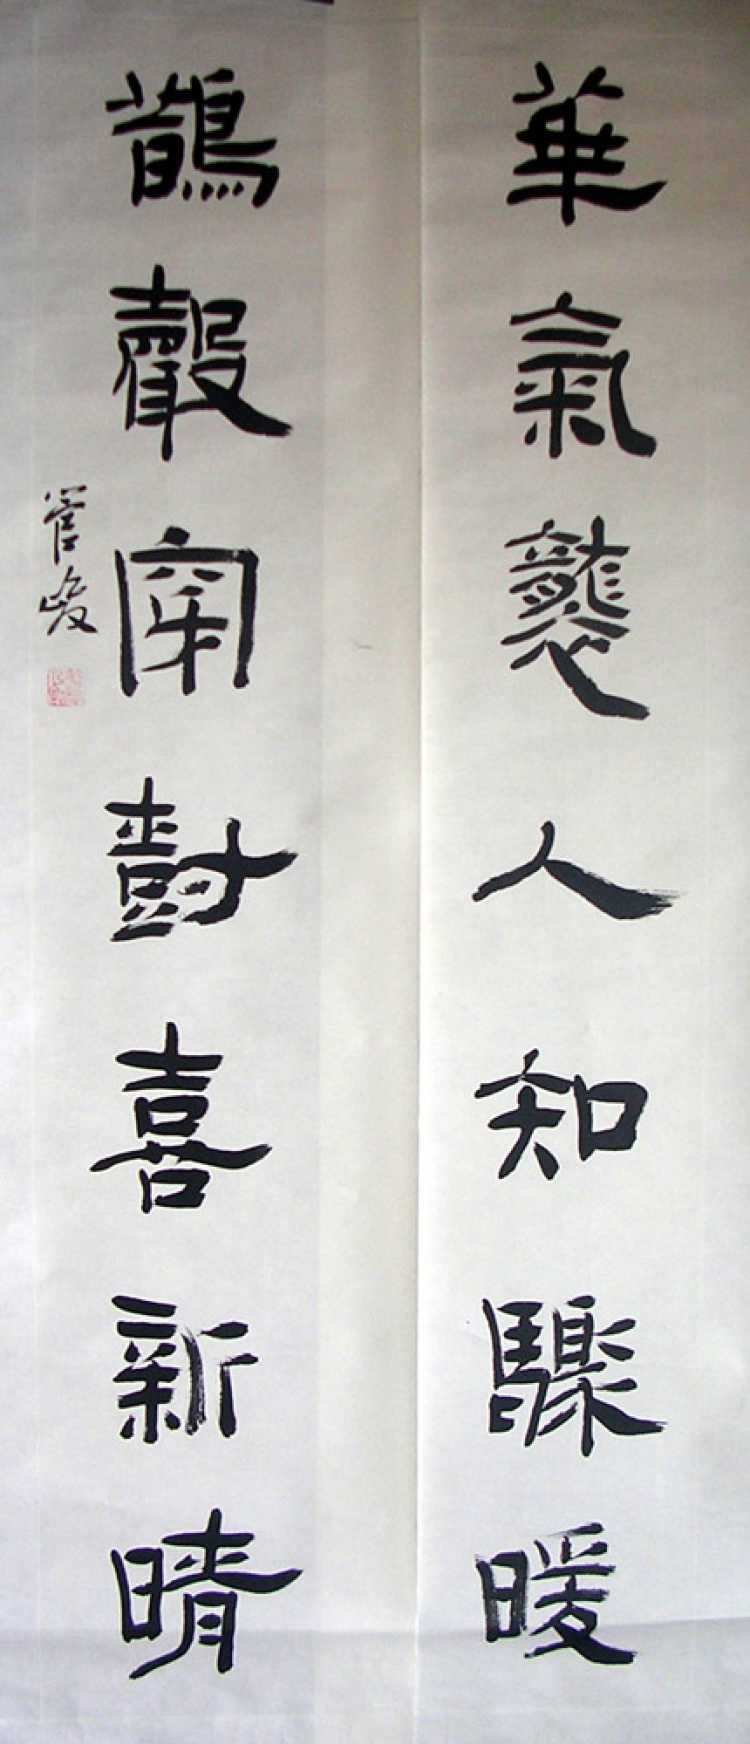 華氣襲人知驟暖
鵲聲穿樹喜新晴
管峻